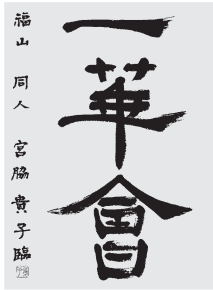 一華會
福山 同人 宮脇貴子臨